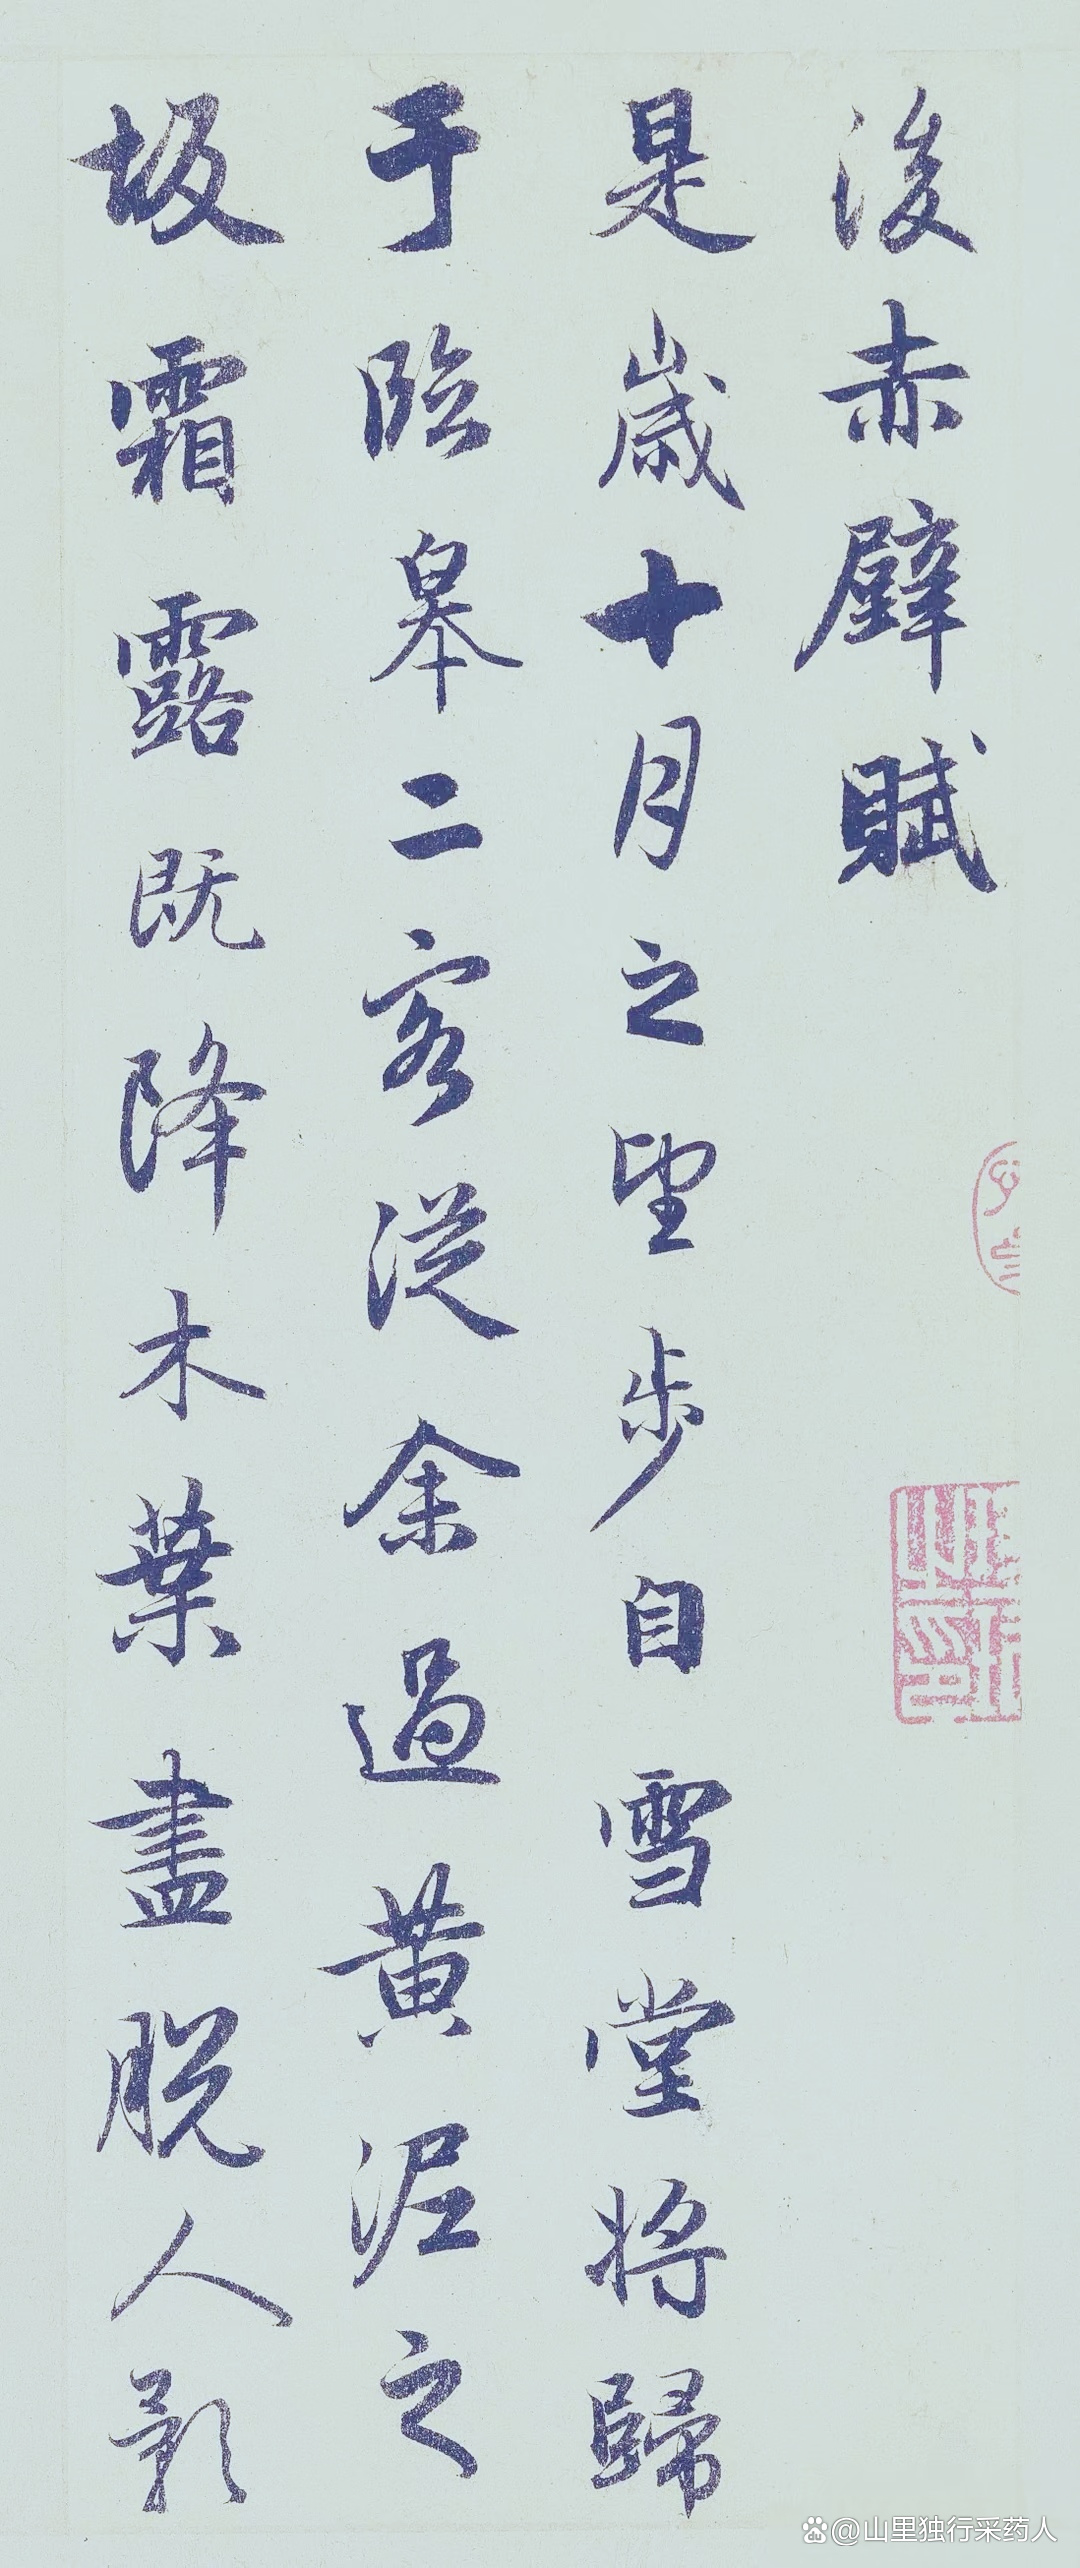 後赤壁賦
是歲十月之望步自雪堂將歸
于臨皋二客從余過黃泥之
坂霜露既降木葉盡脫人影
@山里独行采药人